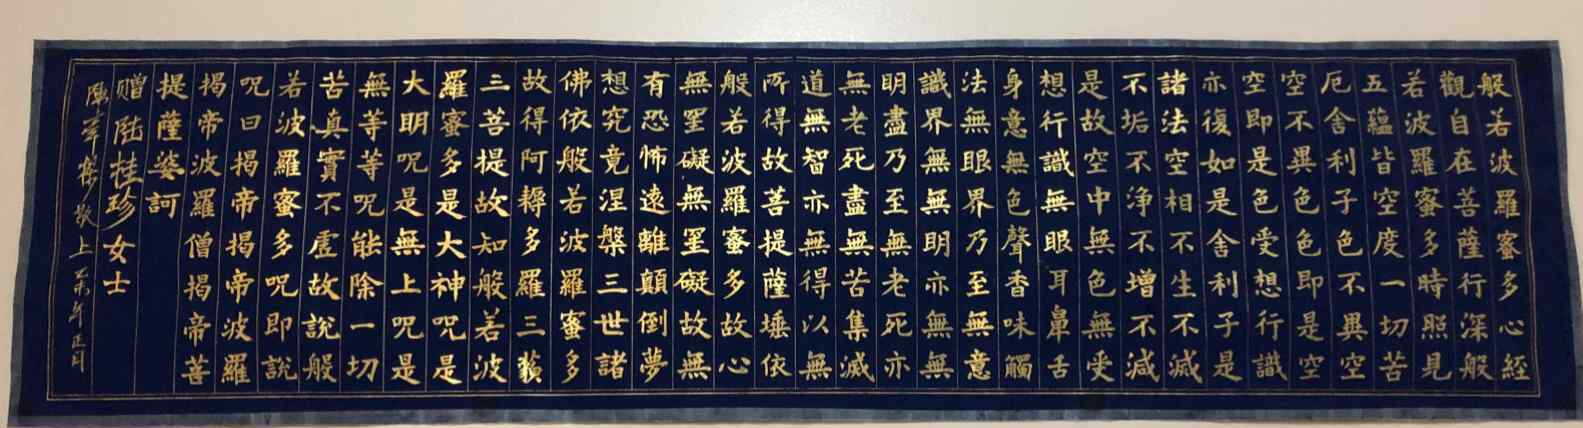 般若波羅蜜多心経
觀自在菩薩行深般
若波羅蜜多時照見
五蘊皆空度一切苦
厄舍利子色不異空
空不異色色即是空
空即是色受想行識
亦復如是舍利子是
諸法空相不生不滅
不垢不净不增不減
是故空中無色無受
想行識無眼耳鼻舌
身意無色聲香味觸
法無眼界乃至無意
識界無無明亦無無
明盡乃至無老死亦
無老死盡無苦集滅
道無智亦無得以無
所得故菩提薩埵依
般若波羅蜜多故心
無罣礙無罣礙故無
有恐怖遠離顛倒夢
想究竟涅槃三世諸
佛依般若波羅蜜多
故得阿耨多羅三藐
三菩提故知般若波
羅蜜多是大神呪是
大明呪是無上呪是
無等等呪能除一切
苦真實不虛故說般
若波羅蜜多呪即說
呪曰揭帝揭帝波羅
揭帝波羅僧揭帝菩
提薩婆訶
赠陆桂珍女士
敬上年正月